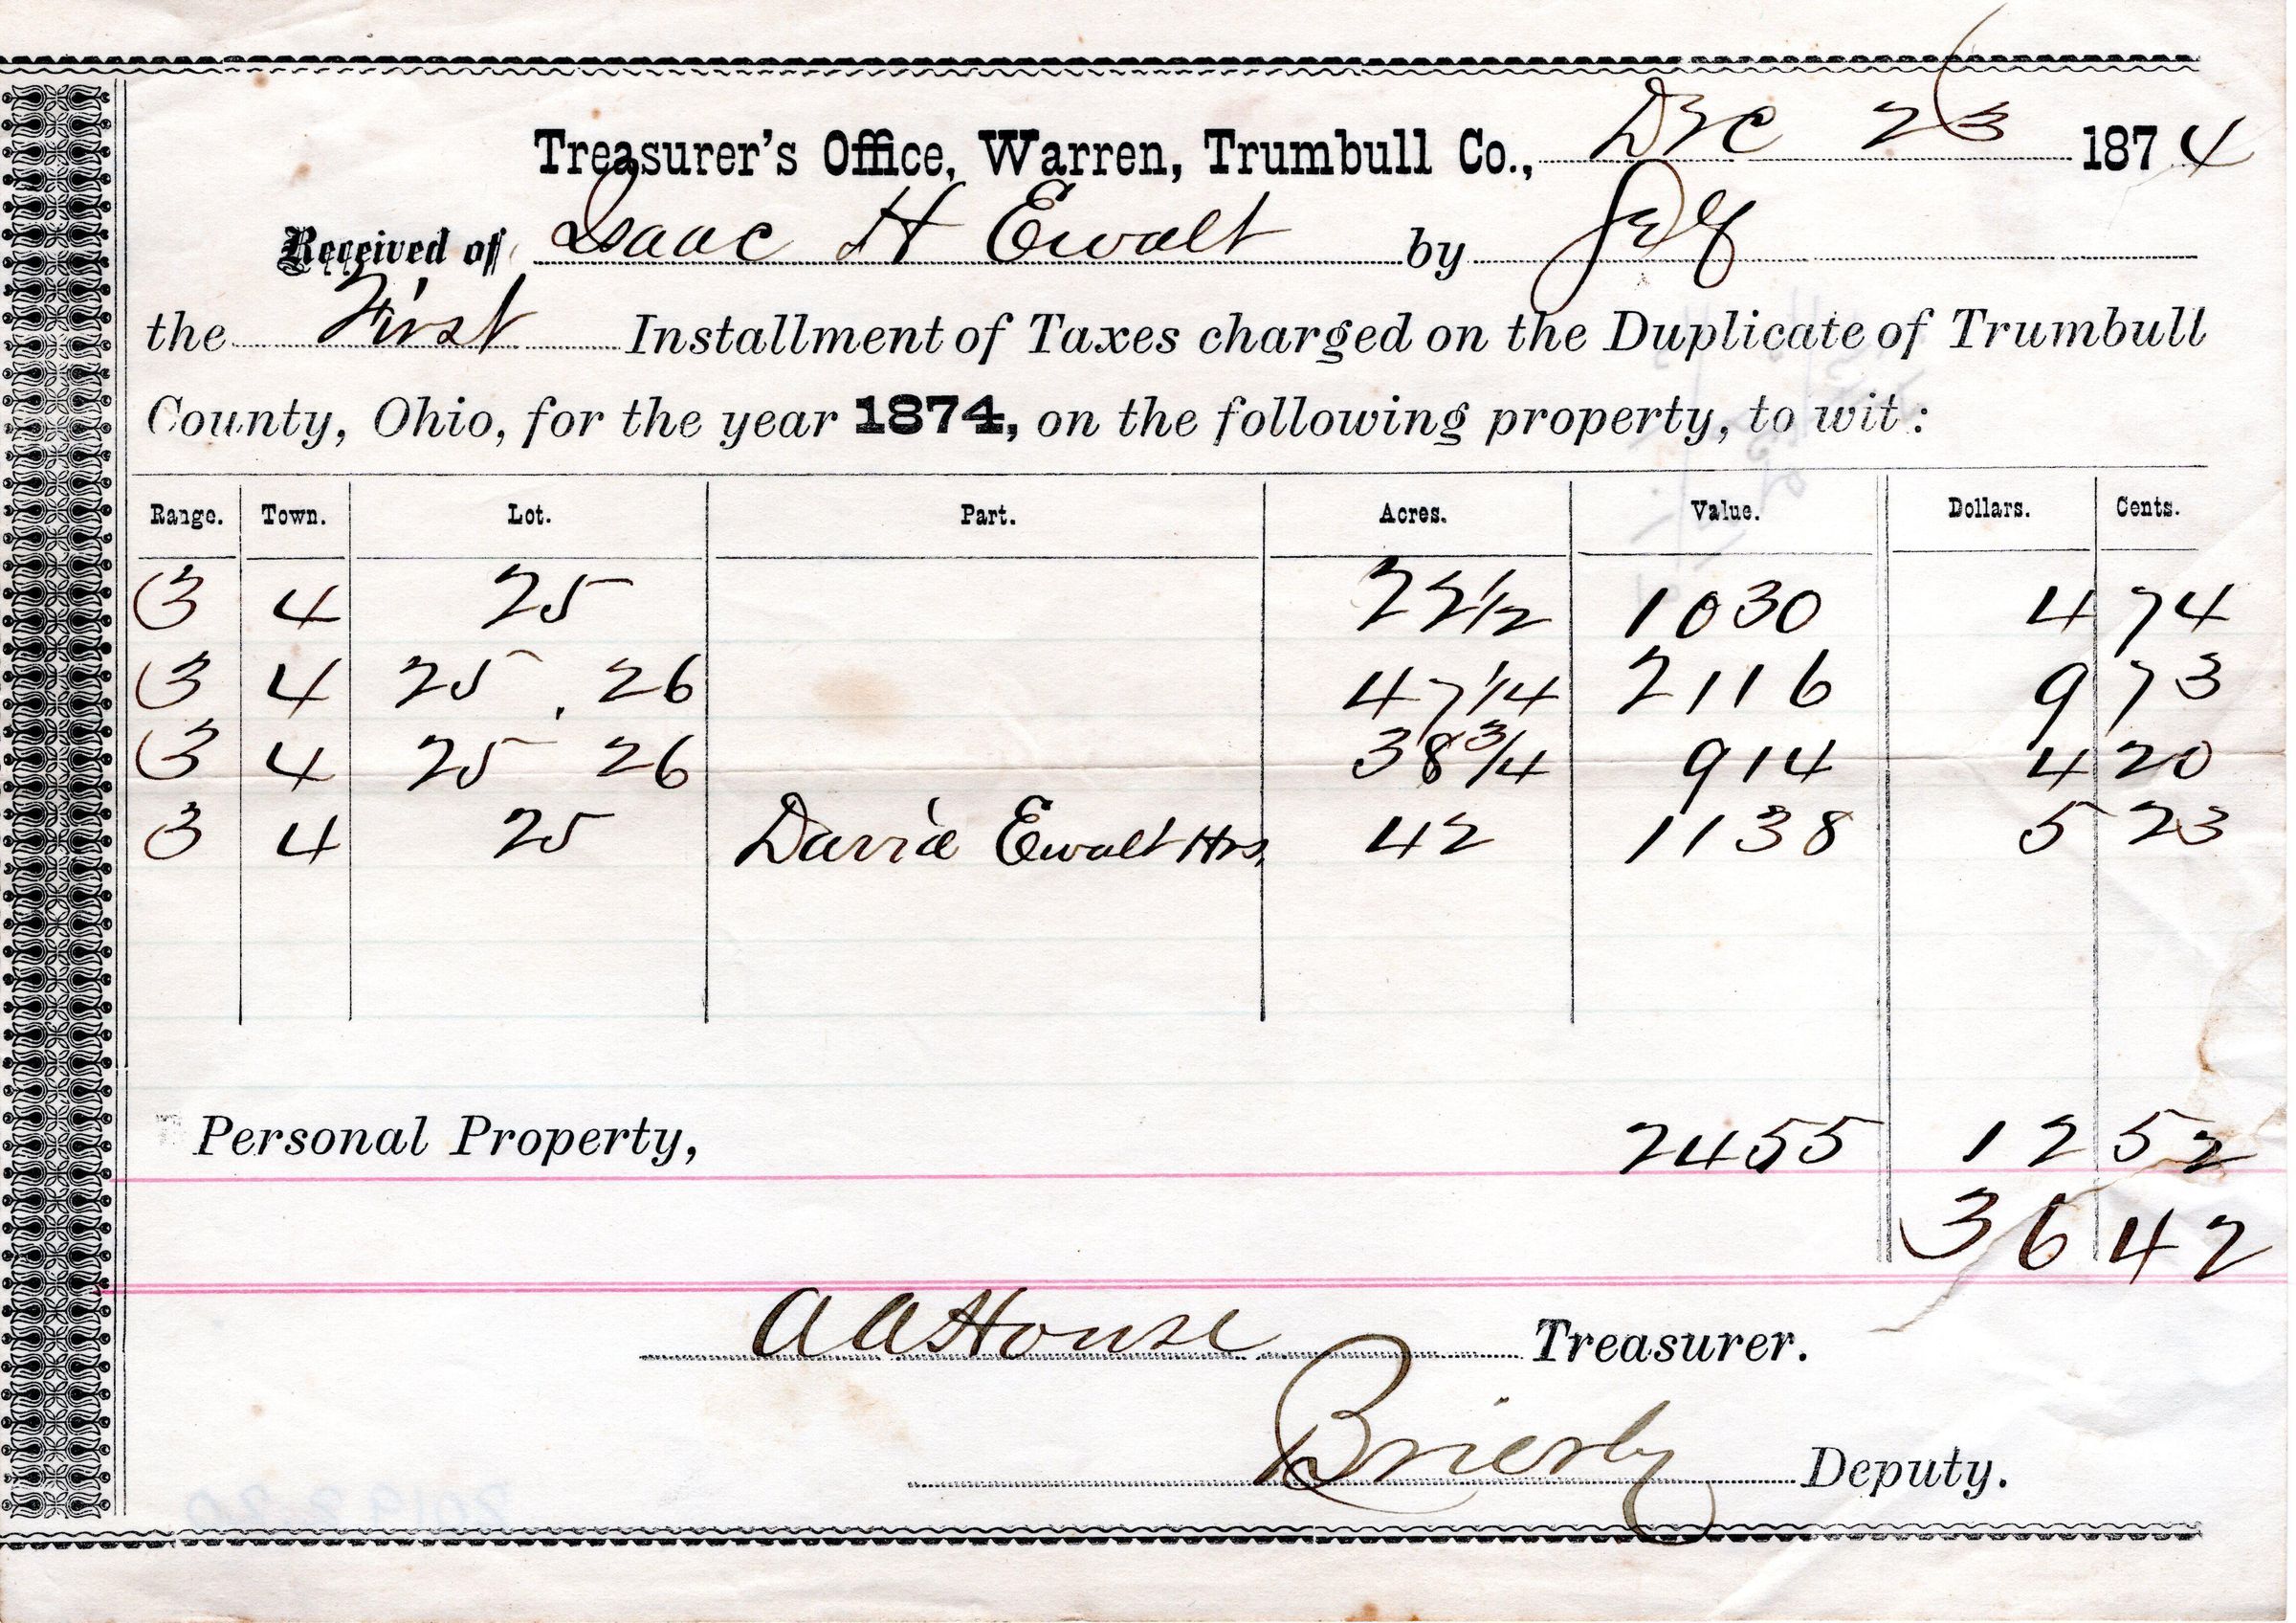 Treasurer's Office, Warren, Trumbull Co., Dec 23 1874
Received of Isaac H Ewalt by Self
the First Installment of Taxes charged on the Duplicate of Trumbull
County, Ohio, for the year 1874, on the following property, to wit:
Range. Town. Lot. Part. Acres. Value. Dollars. Cents.
3 4 25 22 1/2 1030 4 74
3 4 25, 26 47 1/4 2116 9 73
3 4 25 26 38 3/4 914 4 20
3 4 25 David Ewalt Hrs. 42 1138 5 23
Personal Property, 2455 12 52
36 42
A A House Treasurer.
Brierly Deputy.